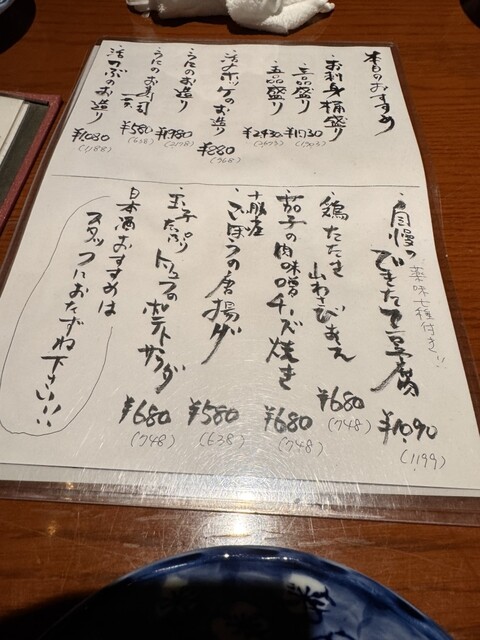 本日のおすすめ
・お刺身桶盛り
三品盛り ¥1,730 (1903)
五品盛り ¥2,430 (2673)
・活〆ホッケのお造り ¥880 (968)
・うにのお造り ¥1980 (2178)
・うにのお寿司 ¥580 (638)
・活つぶのお造り ¥1080 (1188)
・自慢の
できたて豆腐 ¥1,090 (1199)
薬味七種付き!!
・鶏たたき
山わさび和え ¥680 (748)
・茄子の肉味噌チーズ焼き ¥680 (748)
・十勝産
ごぼうの唐揚げ ¥580 (638)
・玉子たっぷり
トロフのポテトサラダ ¥680 (748)
日本酒おすすめは
スタッフにおたずね下さい!!